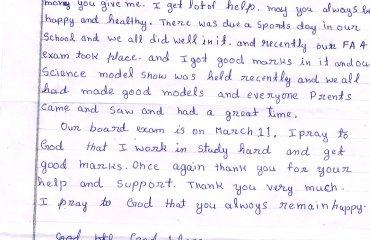 money you give me. I get lot of help. may you always be
happy and healthy. There was due a Sports day in our
School and we all did well in it. and recently our FA 4
exam took place. and I got good marks in it and ou
Science model show was held recently and we all
had made good models and everyone Prents
came and saw and had a great time.
Our board exam is on March 11, I pray to
God that I work in study hard and get
good marks. Once again thank you for your
help and support. Thank you very much.
I pray to God that you always remain happy.